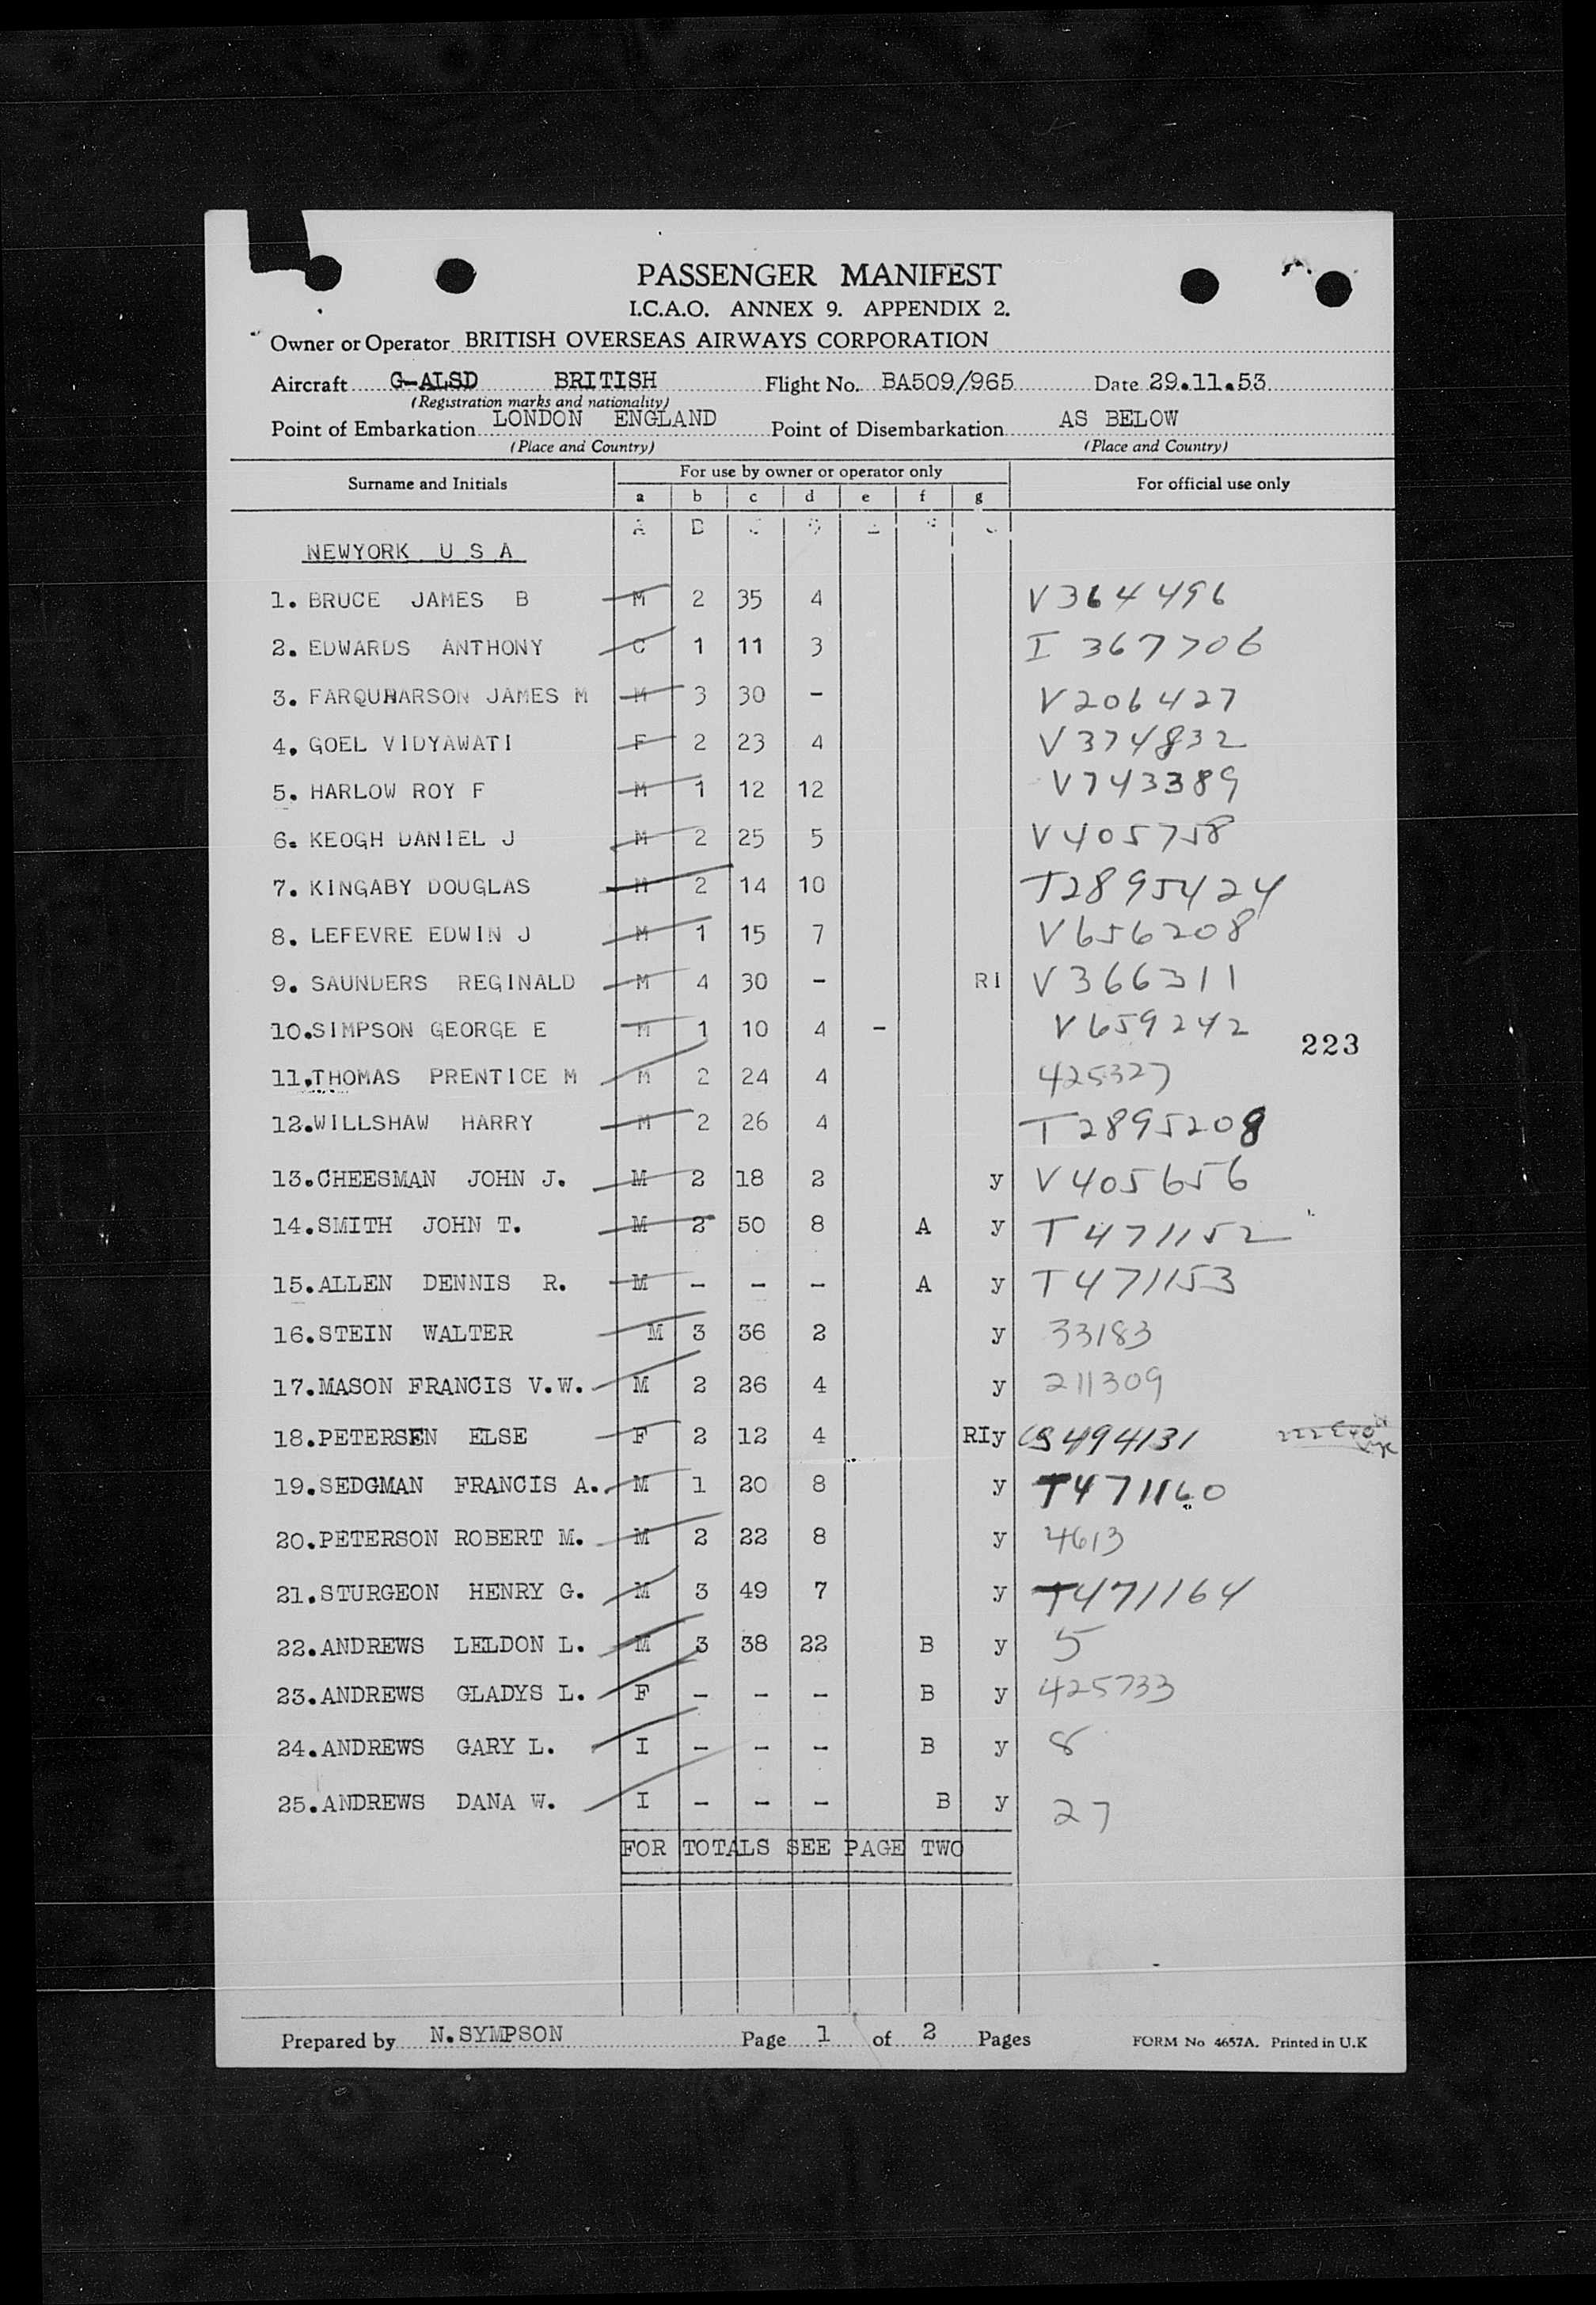 PASSENGER MANIFEST
I.C.A.O. ANNEX 9. APPENDIX 2.
Owner or Operator BRITISH OVERSEAS AIRWAYS CORPORATION
Aircraft G-ALSD BRITISH Flight No. BA509/965 Date 29.11.53
(Registration marks and nationality)
Point of Embarkation LONDON ENGLAND Point of Disembarkation AS BELOW
(Place and Country) (Place and Country)
Surname and Initials For use by owner or operator only For official use only
a b c d e f g
A B
NEWYORK U S A
1. BRUCE JAMES B M 2 35 4 V364496
2. EDWARDS ANTHONY C 1 11 3 I 367706
3. FARQUHARSON JAMES M M 3 30 - V206427
4. GOEL VIDYAWATI F 2 23 4 V374832
5. HARLOW ROY F M 1 12 12 V743389
6. KEOGH DANIEL J M 2 25 5 V405758
7. KINGABY DOUGLAS M 2 14 10 T2895424
8. LEFEVRE EDWIN J M 1 15 7 V656208
9. SAUNDERS REGINALD M 4 30 - RI V366311
10.SIMPSON GEORGE E M 1 10 4 - V659242
223
11.THOMAS PRENTICE M M 2 24 4 425327
12.WILLSHAW HARRY M 2 26 4 T2895208
13.CHEESMAN JOHN J. M 2 18 2 y V405656
14.SMITH JOHN T. M 2 50 8 A y T471152
15.ALLEN DENNIS R. M - - - A y T471153
16.STEIN WALTER M 3 36 2 y 33183
17.MASON FRANCIS V.W. M 2 26 4 y 211309
18.PETERSEN ELSE F 2 12 4 RIy 494131
19.SEDGMAN FRANCIS A. M 1 20 8 y T471160
20.PETERSON ROBERT M. M 2 22 8 y 4613
21.STURGEON HENRY G. M 3 49 7 y T471164
22.ANDREWS LELDON L. M 3 38 22 B y 5
23.ANDREWS GLADYS L. F - - - B y 425733
24.ANDREWS GARY L. I - - - B y 8
25.ANDREWS DANA W. I - - - B y 27
FOR TOTALS SEE PAGE TWO
Prepared by N.SYMPSON Page 1 of 2 Pages FORM No 4657A. Printed in U.K